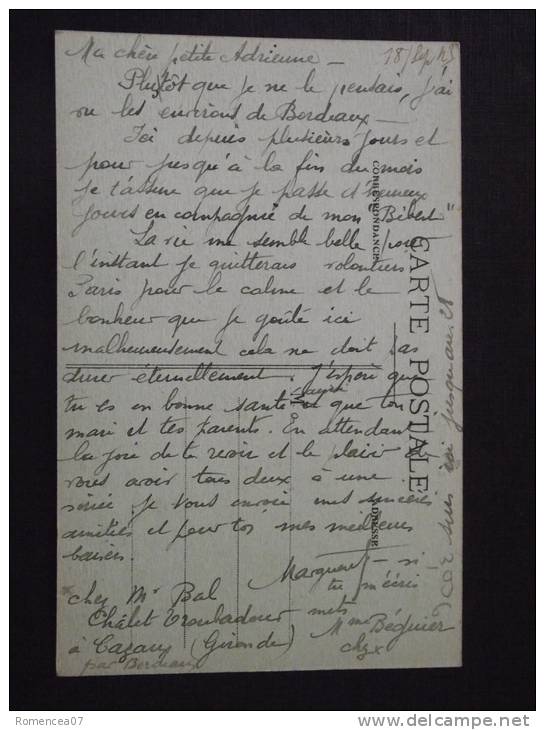 18/Sep
Ma chère petite Adrienne —
Plutôt que je ne le pensais, j'ai
vu les environs de Bordeaux —
Ici depuis plusieurs jours et
pour jusqu'à la fin du mois
je t'assure que je passe d'heureux
jours en compagnie de mon Bébert"
La vie me semble belle pour
l'instant je quitterais volontiers
Paris pour le calme et le
bonheur que je goûte ici
malheureusement cela ne doit pas
durer éternellement. J'espère que
tu es en bonne santé que ton
mari et tes parents. En attendant
la joie de te revoir et le plaisir
vous avoir tous deux à une
soirée je vous envoie mes sincères
amitiés et pour toi mes meilleurs
baisers.
si
tu m'écris
mets
Mme Béguier
chez
chez Mr Bal
Châlet Troubadour
à Cazaux (Gironde)
par Bordeaux
CORRESPONDANCE
CARTE POSTALE
ADRESSE
M
suis ici jusqu'au 28
Romencea07
http://www.delcampe.net